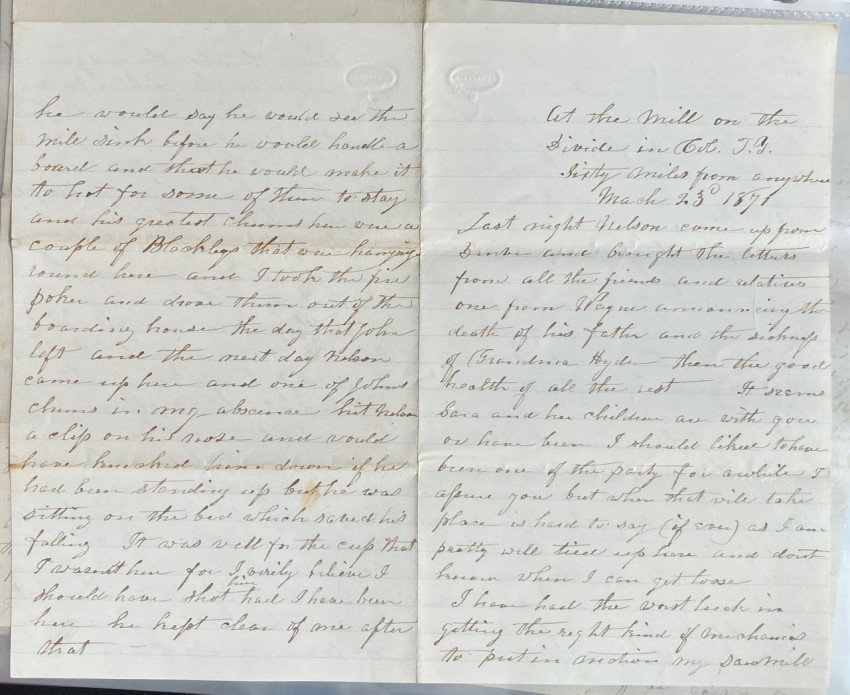 At the Mill on the
Divide in Col. T.Y.
Sixty Miles from anywhere
Mach 23d 1871
Last night Nelson came up from
Denver and brought the letters
from all the friends and relatives
one from Wayne announcing the
death of his father and the sickness
of Grandma Hyde then the good
health of all the rest It seems
Sara and her children are with you
or have been I should liked to have
been one of the party for awhile I
assure you but when that will take
place is hard to say (if ever) as I am
pretty well tied up here and dont
know when I can get loose
I have had the worst luck in
getting the right kind of mechanics
to put in motion my sawmill
he would say he would see the
mill sink before he would handle a
board and that he would make it
to hot for some of them to stay
and his greatest chums here was a
couple of Blacklegs that was hanging
round here and I took the fire
poker and drove them out of the
boarding house the day that John
left and the next day Nelson
came up here and one of Johns
chums in my absence hit Nelson
a clip on his nose and would
have knocked him down if he
had been standing up but he was
sitting on the bed which saved his
falling It was well for the cup that
I wasnt here for I verily believe I
should have shot him had I have been
here he kept clear of me after
that —